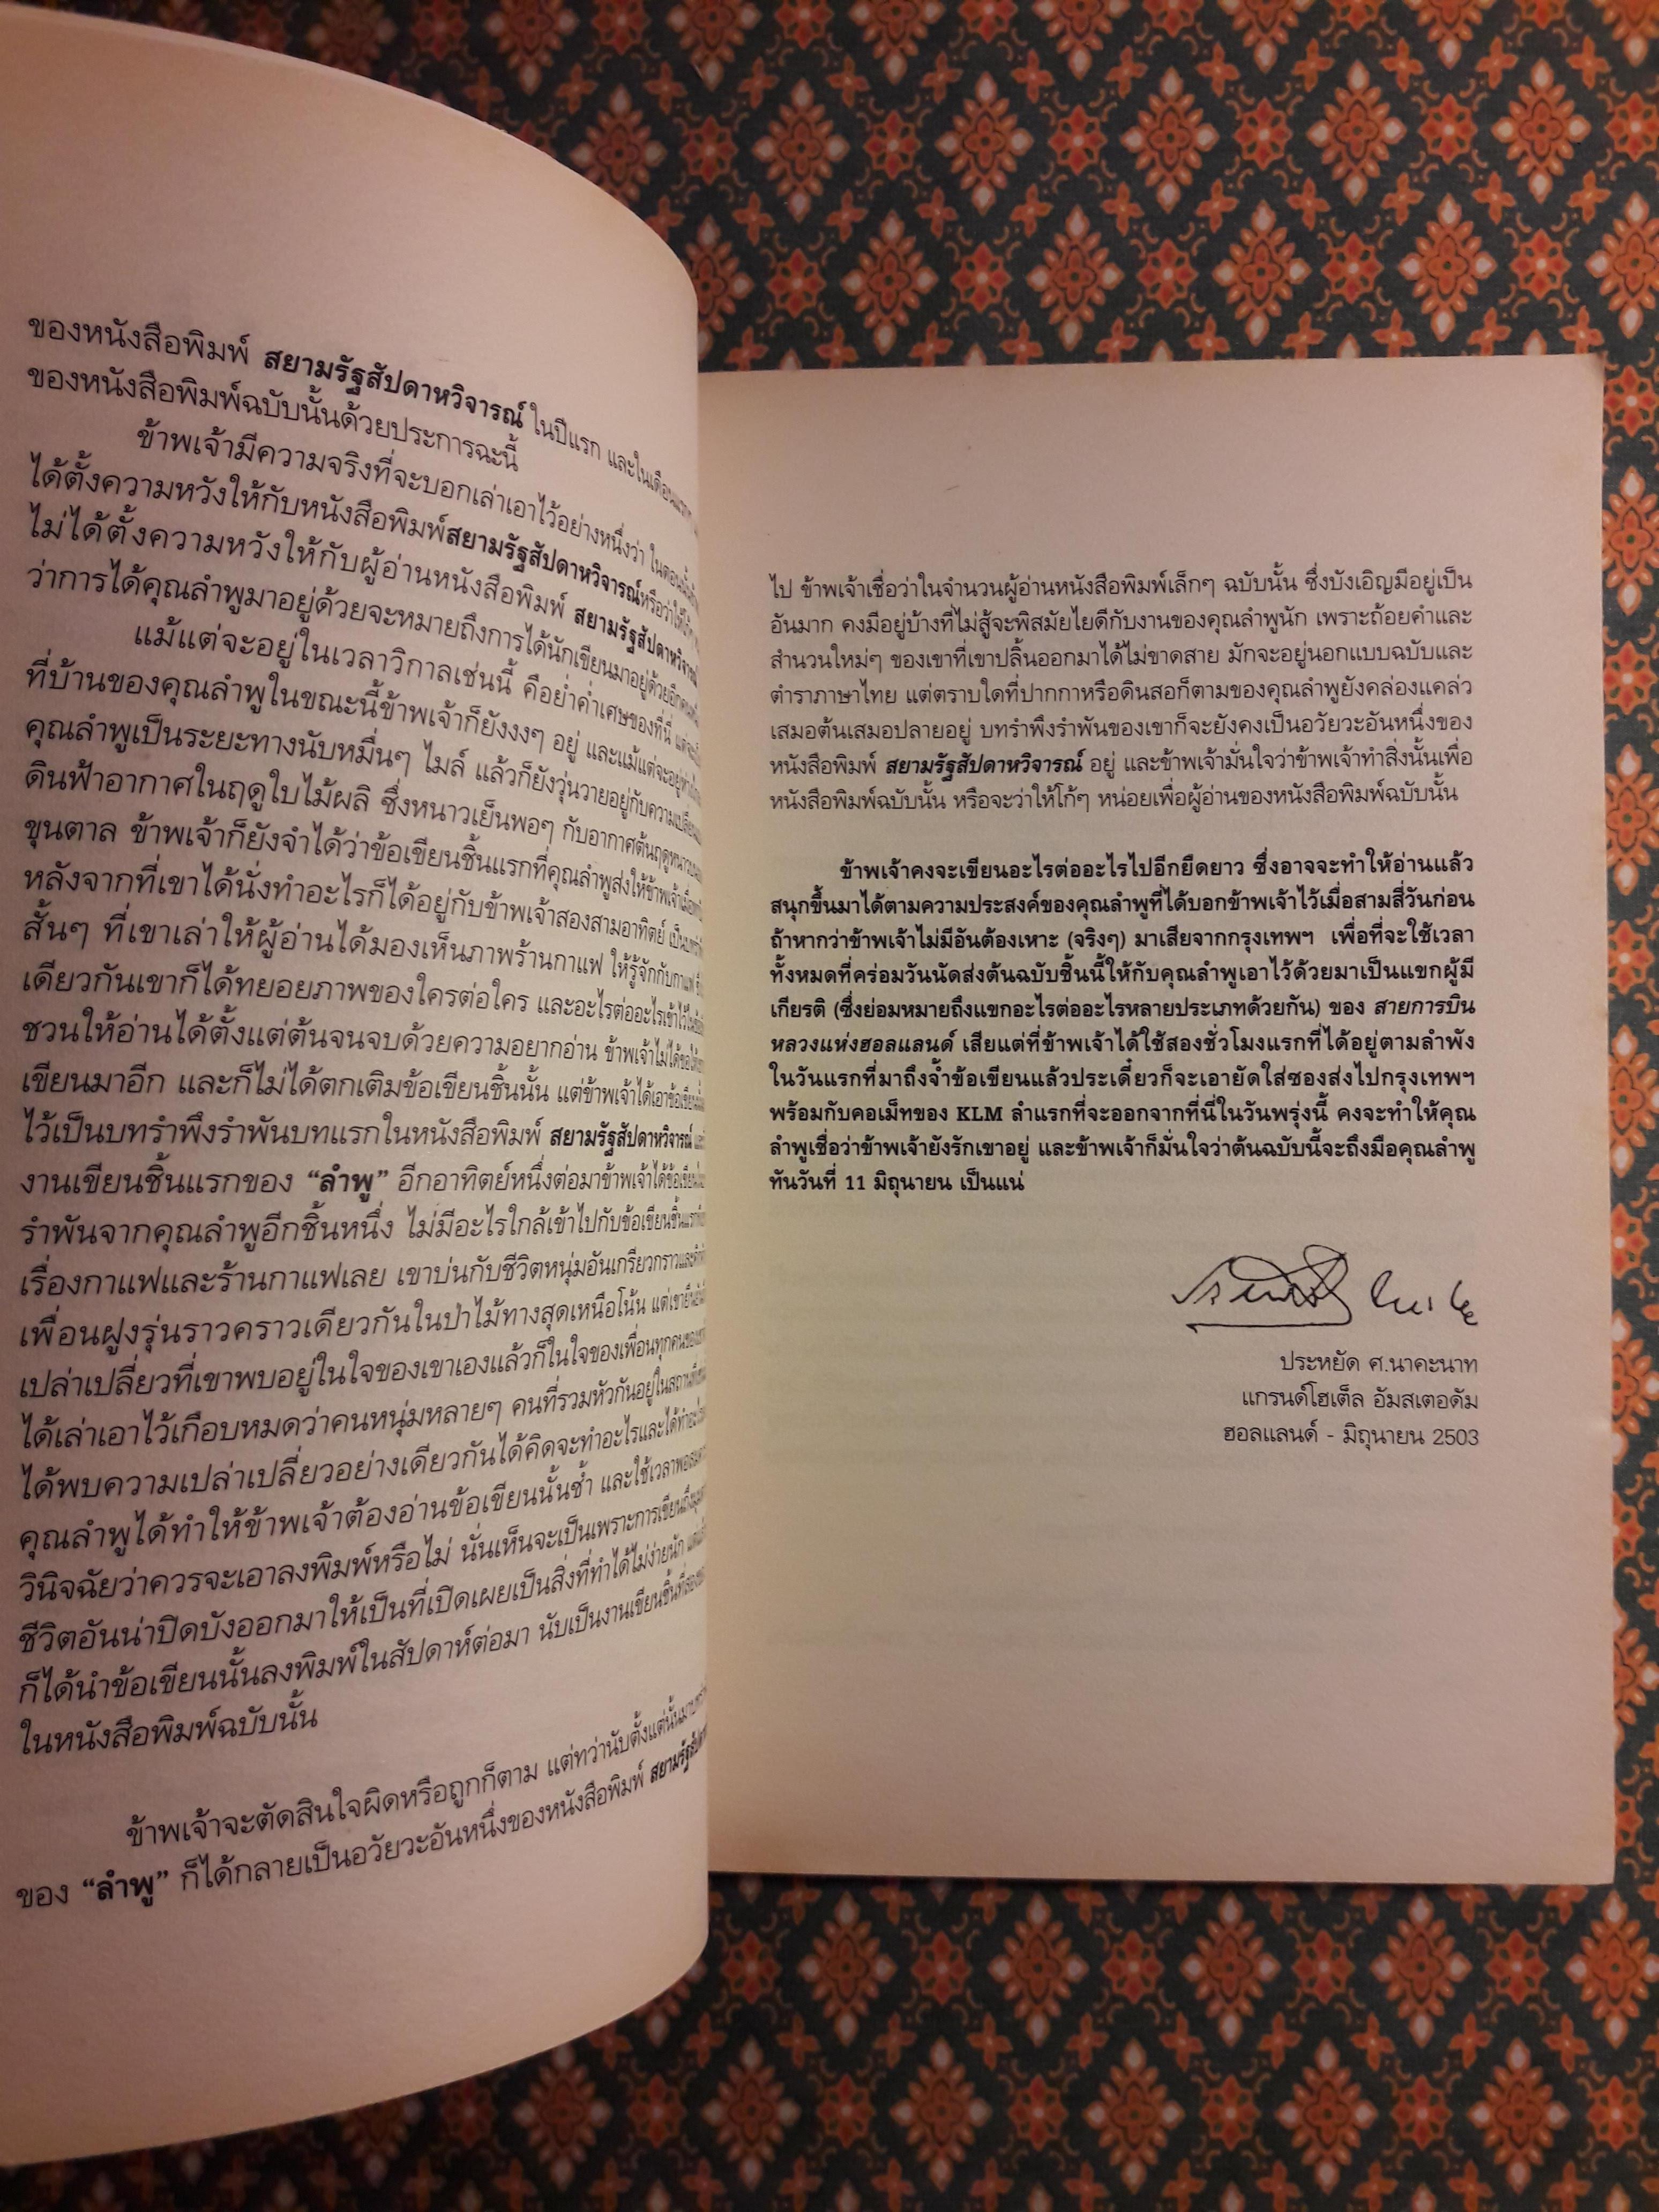 ของหนังสือพิมพ์ สยามรัฐสัปดาหวิจารณ์ ในปีแรก และในเดือนแรก
ของหนังสือพิมพ์ฉบับนั้นด้วยประการฉะนี้
ข้าพเจ้ามีความจริงที่จะบอกเล่าเอาไว้อย่างหนึ่งว่า ในตอนนั้น
ได้ตั้งความหวังให้กับหนังสือพิมพ์สยามรัฐสัปดาหวิจารณ์หรือว่าได้
ไม่ได้ตั้งความหวังให้กับผู้อ่านหนังสือพิมพ์ สยามรัฐสัปดาหวิจารณ์
ว่าการได้คุณลำพูมาอยู่ด้วยจะหมายถึงการได้นักเขียนมาอยู่ด้วยอีกคนหนึ่ง
แม้แต่จะอยู่ในเวลาวิกาลเช่นนี้ คือย่ำค่ำเศษของที่นี่
ที่บ้านของคุณลำพูในขณะนี้ข้าพเจ้าก็ยังงงๆ อยู่ และแม้แต่จะอยู่ห่างไกล
คุณลำพูเป็นระยะทางนับหมื่นๆ ไมล์ แล้วก็ยังวุ่นวายอยู่กับความเปลี่ยน
ดินฟ้าอากาศในฤดูใบไม้ผลิ ซึ่งหนาวเย็นพอๆ กับอากาศต้นฤดูหนาว
ขุนตาล ข้าพเจ้าก็ยังจำได้ว่าข้อเขียนชิ้นแรกที่คุณลำพูส่งให้ข้าพเจ้า
หลังจากที่เขาได้นั่งทำอะไรก็ได้อยู่กับข้าพเจ้าสองสามอาทิตย์
สั้นๆ ที่เขาเล่าให้ผู้อ่านได้มองเห็นภาพร้านกาแฟ ให้รู้จักกับกาแฟ
เดียวกันเขาก็ได้ทยอยภาพของใครต่อใคร และอะไรต่ออะไรเข้าไว้
ชวนให้อ่านได้ตั้งแต่ต้นจนจบด้วยความอยากอ่าน ข้าพเจ้าไม่ได้ขอให้เขา
เขียนมาอีก และก็ไม่ได้ตกเติมข้อเขียนชิ้นนั้น แต่ข้าพเจ้าได้เอาข้อเขียน
ไว้เป็นบทรำพึงรำพันบทแรกในหนังสือพิมพ์ สยามรัฐสัปดาหวิจารณ์
งานเขียนชิ้นแรกของ “ลำพู” อีกอาทิตย์หนึ่งต่อมาข้าพเจ้าได้ข้อเขียน
รำพันจากคุณลำพูอีกชิ้นหนึ่ง ไม่มีอะไรใกล้เข้าไปกับข้อเขียนชิ้นแรก
เรื่องกาแฟและร้านกาแฟเลย เขาบ่นกับชีวิตหนุ่มอันเกรียวกราวและ
เพื่อนฝูงรุ่นราวคราวเดียวกันในป่าไม้ทางสุดเหนือโน้น
เปล่าเปลี่ยวที่เขาพบอยู่ในใจของเขาเองแล้วก็ในใจของเพื่อนทุกคนของเขา
ได้เล่าเอาไว้เกือบหมดว่าคนหนุ่มหลายๆ คนที่รวมหัวกันอยู่ในสถานที่
ได้พบความเปล่าเปลี่ยวอย่างเดียวกันได้คิดจะทำอะไรและได้ทำอะไร
คุณลำพูได้ทำให้ข้าพเจ้าต้องอ่านข้อเขียนนั้นซ้ำ และใช้เวลาพอสมควร
วินิจฉัยว่าควรจะเอาลงพิมพ์หรือไม่ นั่นเห็นจะเป็นเพราะการเขียนถึง
ชีวิตอันน่าปิดบังออกมาให้เป็นที่เปิดเผยเป็นสิ่งที่ทำได้ไม่ง่ายนัก
ก็ได้นำข้อเขียนนั้นลงพิมพ์ในสัปดาห์ต่อมา นับเป็นงานเขียนชิ้นที่สอง
ในหนังสือพิมพ์ฉบับนั้น
ข้าพเจ้าจะตัดสินใจผิดหรือถูกก็ตาม แต่ทว่านับตั้งแต่นั้นมา
ของ “ลำพู” ก็ได้กลายเป็นอวัยวะอันหนึ่งของหนังสือพิมพ์ สยามรัฐ
ไป ข้าพเจ้าเชื่อว่าในจำนวนผู้อ่านหนังสือพิมพ์เล็กๆ ฉบับนั้น ซึ่งบังเอิญมีอยู่เป็น
อันมาก คงมีอยู่บ้างที่ไม่สู้จะพิสมัยไยดีกับงานของคุณลำพูนัก เพราะถ้อยคำและ
สำนวนใหม่ๆ ของเขาที่เขาปลิ้นออกมาได้ไม่ขาดสาย มักจะอยู่นอกแบบฉบับและ
ตำราภาษาไทย แต่ตราบใดที่ปากกาหรือดินสอก็ตามของคุณลำพูยังคล่องแคล่ว
เสมอต้นเสมอปลายอยู่ บทรำพึงรำพันของเขาก็จะยังคงเป็นอวัยวะอันหนึ่งของ
หนังสือพิมพ์ สยามรัฐสัปดาหวิจารณ์ อยู่ และข้าพเจ้ามั่นใจว่าข้าพเจ้าทำสิ่งนั้นเพื่อ
หนังสือพิมพ์ฉบับนั้น หรือจะว่าให้โก้ๆ หน่อยเพื่อผู้อ่านของหนังสือพิมพ์ฉบับนั้น
ข้าพเจ้าคงจะเขียนอะไรต่ออะไรไปอีกยืดยาว ซึ่งอาจจะทำให้อ่านแล้ว
สนุกขึ้นมาได้ตามความประสงค์ของคุณลำพูที่ได้บอกข้าพเจ้าไว้เมื่อสามสี่วันก่อน
ถ้าหากว่าข้าพเจ้าไม่มีอันต้องเหาะ (จริงๆ) มาเสียจากกรุงเทพฯ เพื่อที่จะใช้เวลา
ทั้งหมดที่คร่อมวันนัดส่งต้นฉบับชิ้นนี้ให้กับคุณลำพูเอาไว้ด้วยมาเป็นแขกผู้มี
เกียรติ (ซึ่งย่อมหมายถึงแขกอะไรต่ออะไรหลายประเภทด้วยกัน) ของ สายการบิน
หลวงแห่งฮอลแลนด์ เสียแต่ที่ข้าพเจ้าได้ใช้สองชั่วโมงแรกที่ได้อยู่ตามลำพัง
ในวันแรกที่มาถึงจ้ำข้อเขียนแล้วประเดี๋ยวก็จะเอายัดใส่ซองส่งไปกรุงเทพฯ
พร้อมกับคอเม็ทของ KLM ลำแรกที่จะออกจากที่นี่ในวันพรุ่งนี้ คงจะทำให้คุณ
ลำพูเชื่อว่าข้าพเจ้ายังรักเขาอยู่ และข้าพเจ้าก็มั่นใจว่าต้นฉบับนี้จะถึงมือคุณลำพู
ทันวันที่ 11 มิถุนายน เป็นแน่
ประหยัด ศ.นาคะนาท
แกรนด์โฮเต็ล อัมสเตอดัม
ฮอลแลนด์ - มิถุนายน 2503